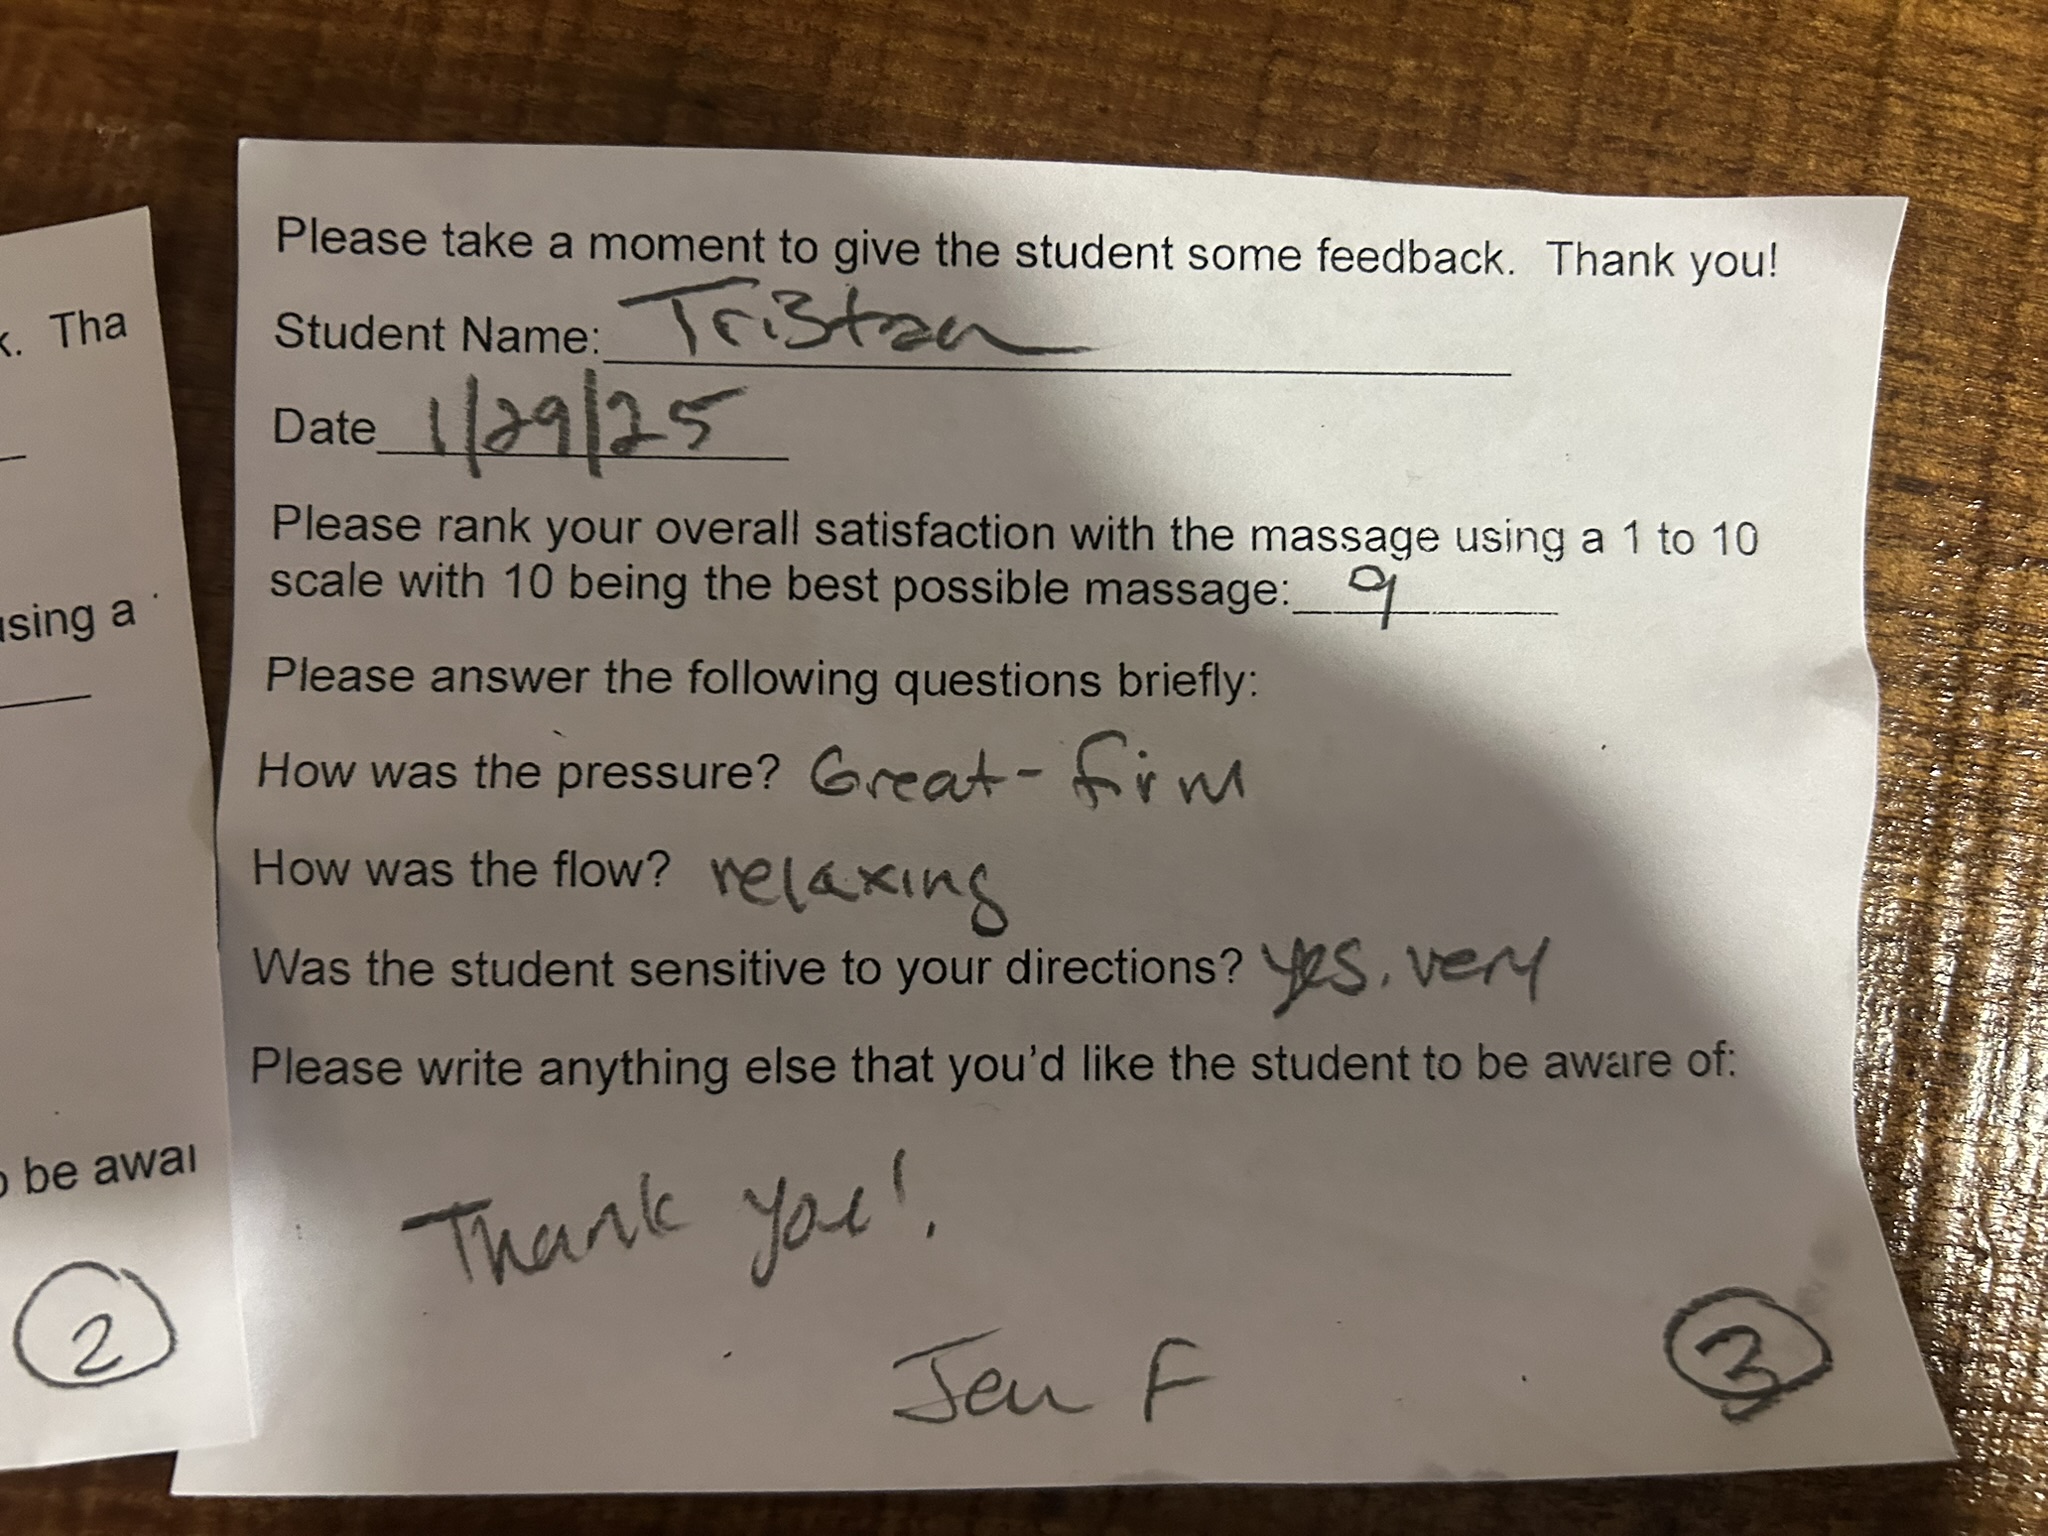 Please take a moment to give the student some feedback.  Thank you!
Student Name: Tristan
Date 1/29/25
Please rank your overall satisfaction with the massage using a 1 to 10
scale with 10 being the best possible massage: 9
Please answer the following questions briefly:
How was the pressure? Great - firm
How was the flow? relaxing
Was the student sensitive to your directions? yes, very
Please write anything else that you'd like the student to be aware of:
Thank you!
Jen F
3
. Tha
using a
be awar
2